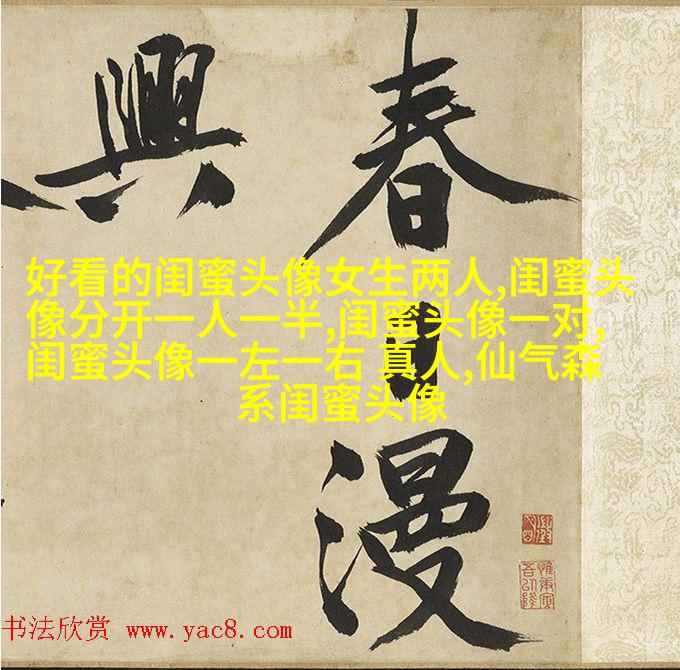 春日漫
興
好看的闺蜜头像女生两人,闺蜜头
像分开一人一半,闺蜜头像一对,
闺蜜头像一左一右 真人,仙气森
系闺蜜头像
书法欣赏 www.yac8.com